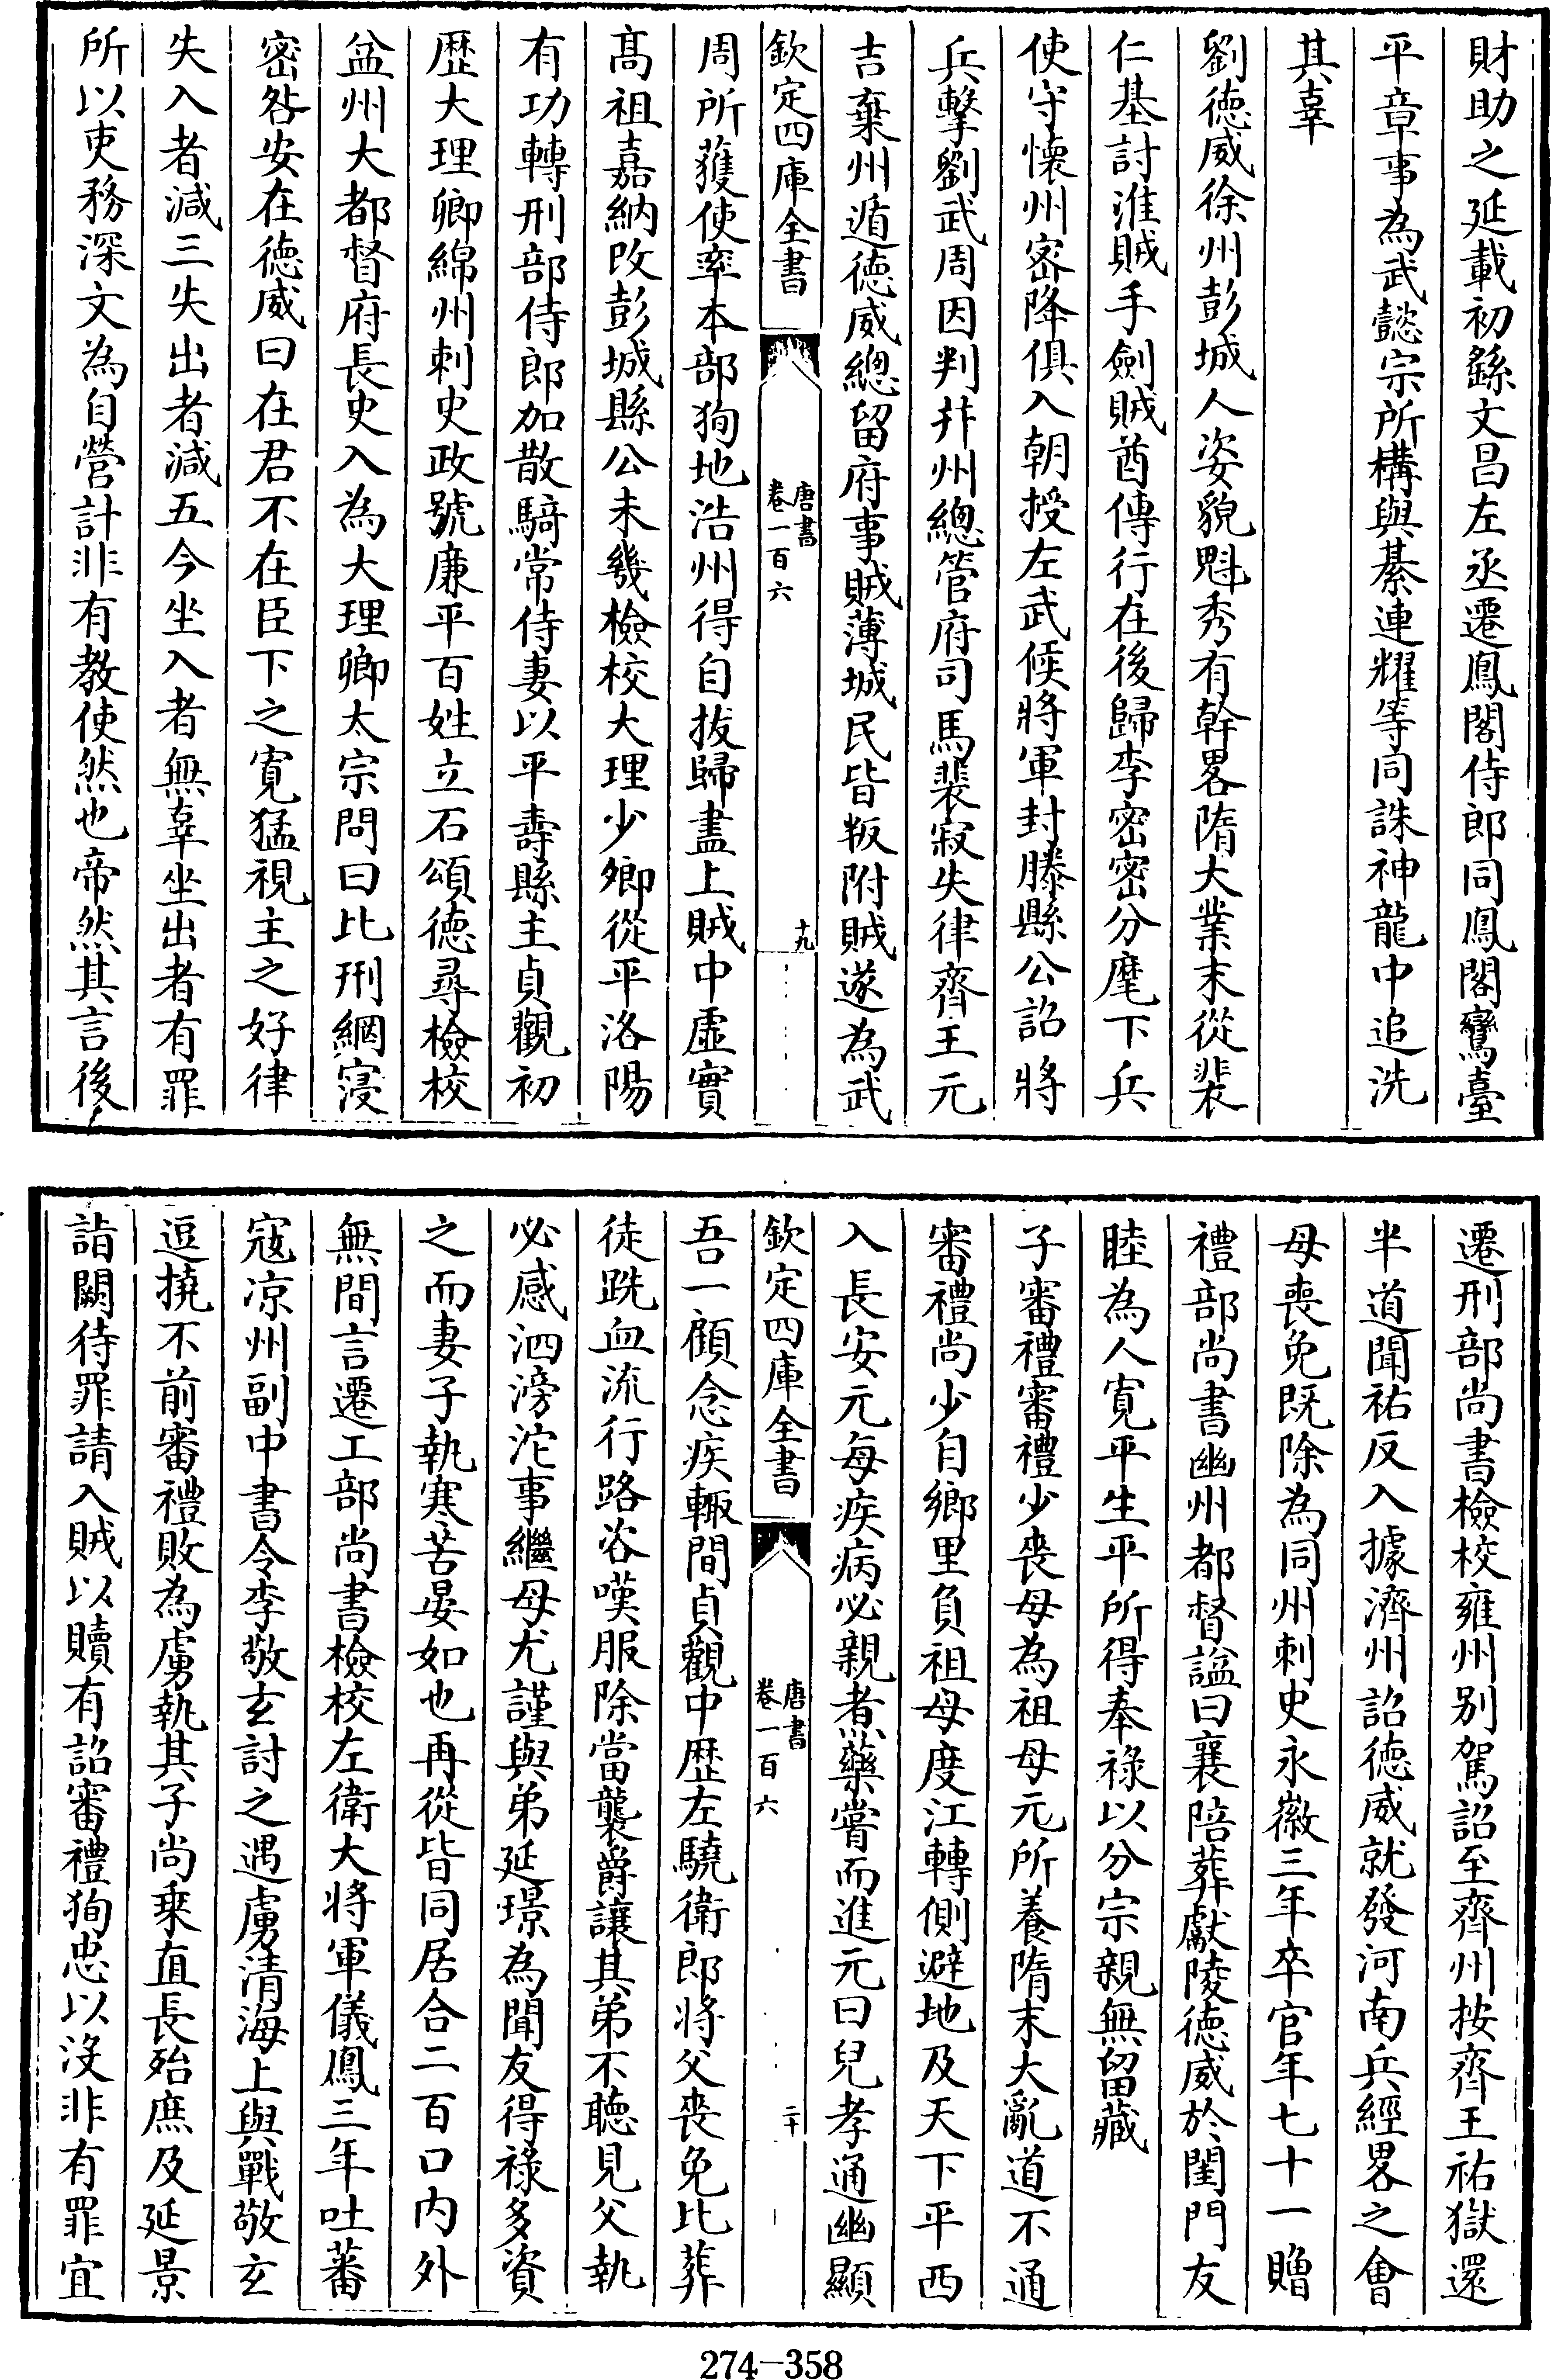 財助之延載初繇文昌左丞遷鳳閣侍郎同鳳閣鸞臺
平章事為武懿宗所構與綦連耀等同誅神龍中追洗
其辜
劉徳威徐州彭城人姿貌魁秀有幹畧隋大業末從裴
仁基討淮賊手劍賊酋傳行在後歸李密密分麾下兵
使守懷州密降俱入朝授左武候將軍封滕縣公詔將
兵擊劉武周因判并州總管府司馬裴寂失律齊王元
吉棄州遁徳威總留府事賊薄城民皆叛附賊遂為武
欽定四庫全書
唐書
卷一百六
十九
周所獲使率本部狥地浩州得自拔歸盡上賊中虛實
髙祖嘉納改彭城縣公未幾檢校大理少卿從平洛陽
有功轉刑部侍郎加散騎常侍妻以平壽縣主貞觀初
歴大理卿綿州刺史政號廉平百姓立石頌徳尋檢校
益州大都督府長史入為大理卿太宗問曰比刑網寖
密咎安在徳威曰在君不在臣下之寛猛視主之好律
失入者減三失出者減五今坐入者無辜坐出者有罪
所以吏務深文為自營計非有教使然也帝然其言後
遷刑部尚書檢校雍州别駕詔至齊州按齊王祐獄還
半道聞祐反入據濟州詔徳威就發河南兵經畧之會
母喪免既除為同州刺史永徽三年卒官年七十一贈
禮部尚書幽州都督諡曰襄陪葬獻陵徳威於閨門友
睦為人寛平生平所得奉祿以分宗親無留藏
子審禮審禮少喪母為祖母元所養隋末大亂道不通
審禮尚少自鄉里負祖母度江轉側避地及天下平西
入長安元每疾病必親煮藥嘗而進元曰兒孝通幽顯
欽定四庫全書
唐書
卷一百六
二十
吾一顧念疾輒間貞觀中歴左驍衛郎將父喪免比葬
徒跣血流行路咨嘆服除當襲爵讓其弟不聴見父執
必感泗滂沱事繼母尤謹與弟延璟為聞友得祿多資
之而妻子執寒苦晏如也再從皆同居合二百口内外
無間言遷工部尚書檢校左衛大將軍儀鳳三年吐蕃
寇凉州副中書令李敬玄討之遇虜清海上與戰敬玄
逗撓不前審禮敗為虜執其子尚乘直長殆庶及延景
詣闕待罪請入賊以贖有詔審禮狥忠以沒非有罪宜
274-358